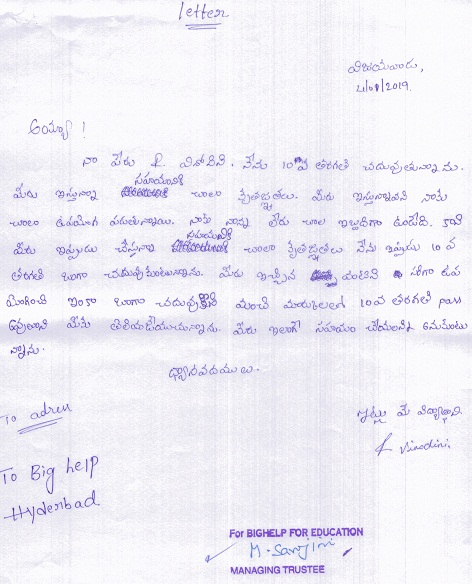 letter
విజయవాడ,
4/09/2019.
అయ్యా!
నా పేరు R. వినోదిని. నేను 10వ తరగతి చదువుతున్నాను.
మీరు ఇస్తున్న సహాయానికి చాలా కృతజ్ఞతలు. మీరు ఇస్తున్నవి నాకు
చాలా ఉపయోగ పడుతున్నాయి. నాకు నాన్న లేరు చాల ఇబ్బందిగా ఉండేది. కానీ
మీరు ఇప్పుడు చేస్తున్న సహాయానికి చాలా కృతజ్ఞతలు నేను ఇప్పుడు 10 వ
తరగతి బాగా చదువుకుంటున్నాను. మీరు ఇచ్చిన వాటిని బాగా ఉప
యోగించి ఇంకా బాగా చదువుకొని మంచి మార్కులతో 10వ తరగతి pass
అవుతానని మీకు తెలియజేయుచున్నాను. మీరు ఇలాగే సహాయం చేయాలని అనుకుంటు
న్నాను.
ధన్యావదములు.
ఇట్లు మీ విద్యార్థిని
R Vinodini.
To adress
To Big help
Hyderbad
For BIGHELP FOR EDUCATION
M. Sarojini
MANAGING TRUSTEE